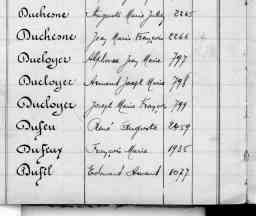 Duchesne Auguste Marie Julien 2265
Duchesne Jean Marie François 2266
Ducloyer Alphonse Jean Marie 797
Ducloyer Armand Joseph Marie 798
Ducloyer Joseph Marie François 799
Dufeu René Auguste 2459
Dufeux François Marie 1935
Dufil Edouard Amant 1077